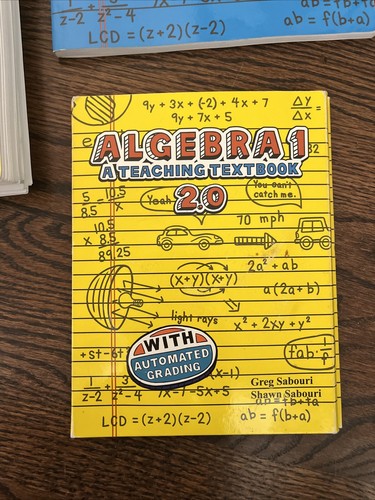 1/z-2 + 3/z²-4
LCD = (z+2)(z-2)
ab = f(b+a)
9y + 3x + (-2) + 4x + 7
9y + 7x + 5
Δy/Δx =
ALGEBRA 1
A TEACHING TEXTBOOK
2.0
32
5 - 10.5
8.5 x
Yeah
You can't
catch me.
70 mph
10.5
x 8.5
89.25
2a² + ab
(x+y)(x+y)
a(2a+b)
light rays
x² + 2xy + y²
WITH
AUTOMATED
GRADING
+st-6t
fab·1/f
1/z-2 + 3/z²-4
7x-7-5x+5
(x-1)
Greg Sabouri
Shawn Sabouri
ab = fb+fa
LCD = (z+2)(z-2)
ab = f(b+a)